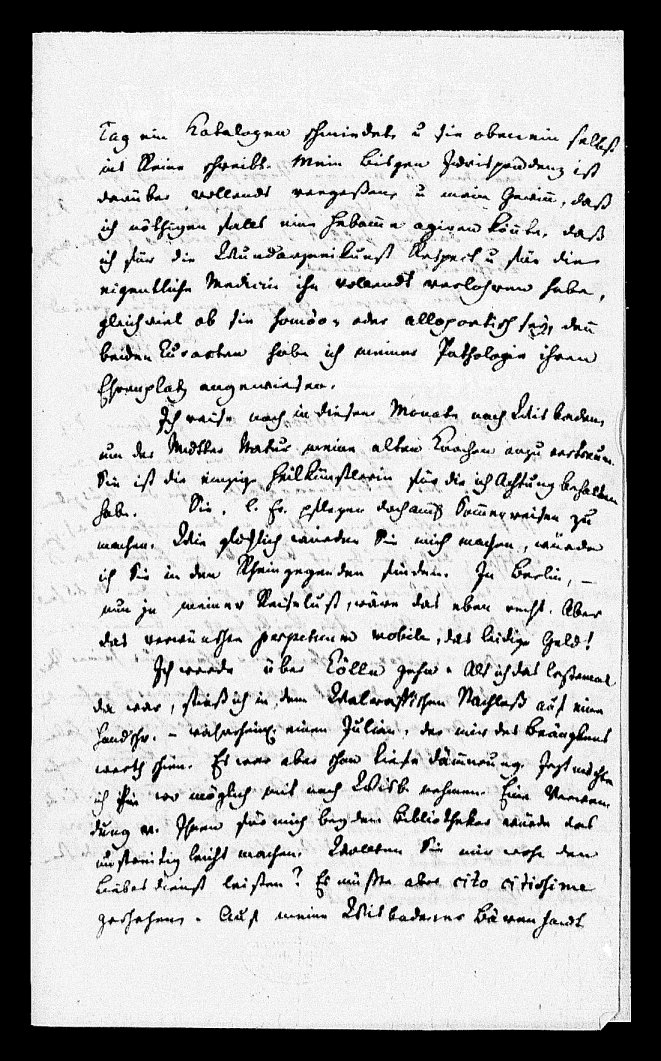 Tag ein Katalogen schmiedet, u sie obenein selbst
ins Reine schreibt. Mein bisgen Jurisprudenz ist
darüber vollends vergeßen, u mein Gewinn, daß
ich nöthigen Falls eine Hebamme agiren könte, daß
ich für die Wundarzneikunst Respect u für die
eigentliche Medicin ihn vollends verlohren habe,
gleichviel ob sie homöo- oder allopoetisch sey, denn
beiden Curarten habe ich meiner Pathologie ihren
Ehrenplatz angewiesen.
Ich reise noch in diesem Monate nach Wisbaden,
um der Mutter Natur meine alten Knochen anzuvertraun.
Sie ist die einzige Heilkünstlerin für die ich Achtung behalten
habe. Sie, l. Fr. pflegen doch auch Sommerreisen zu
machen. Wie glücklich würden Sie mich machen, würde
ich Sie in den Rheingegenden finden. In Berlin, –
nun ja meiner Reiselust, wäre das eben recht. Aber
das verwünschte perpetuum mobile, das leidige Geld!
Ich werde über Cölln gehn. Als ich das leztemal
da war, stieß ich in dem Walrafschen Nachlaß auf eine
Handschr. – wahrscheinl. einen Julian, der mir des Beäugelns
werth schien. Es war aber schon tiefe Dämmerung. Jezt möchte
ich ihn wo möglich mit nach Wisb nehmen. Eine Verwen
dung v. Ihnen für mich bey dem Bibliothekar würde das
unstreitig leicht machen. Wollten Sie mir wohl den
Liebesdienst leisten? Es müßte aber cito citissime
geschehen. Auf meine Wisbadener Bärenhaut